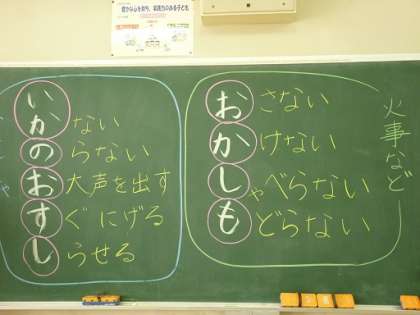 火事など
おさない
かけない
しゃべらない
もどらない
いかない
のらない
お大声を出す
すぐにげる
しらせる